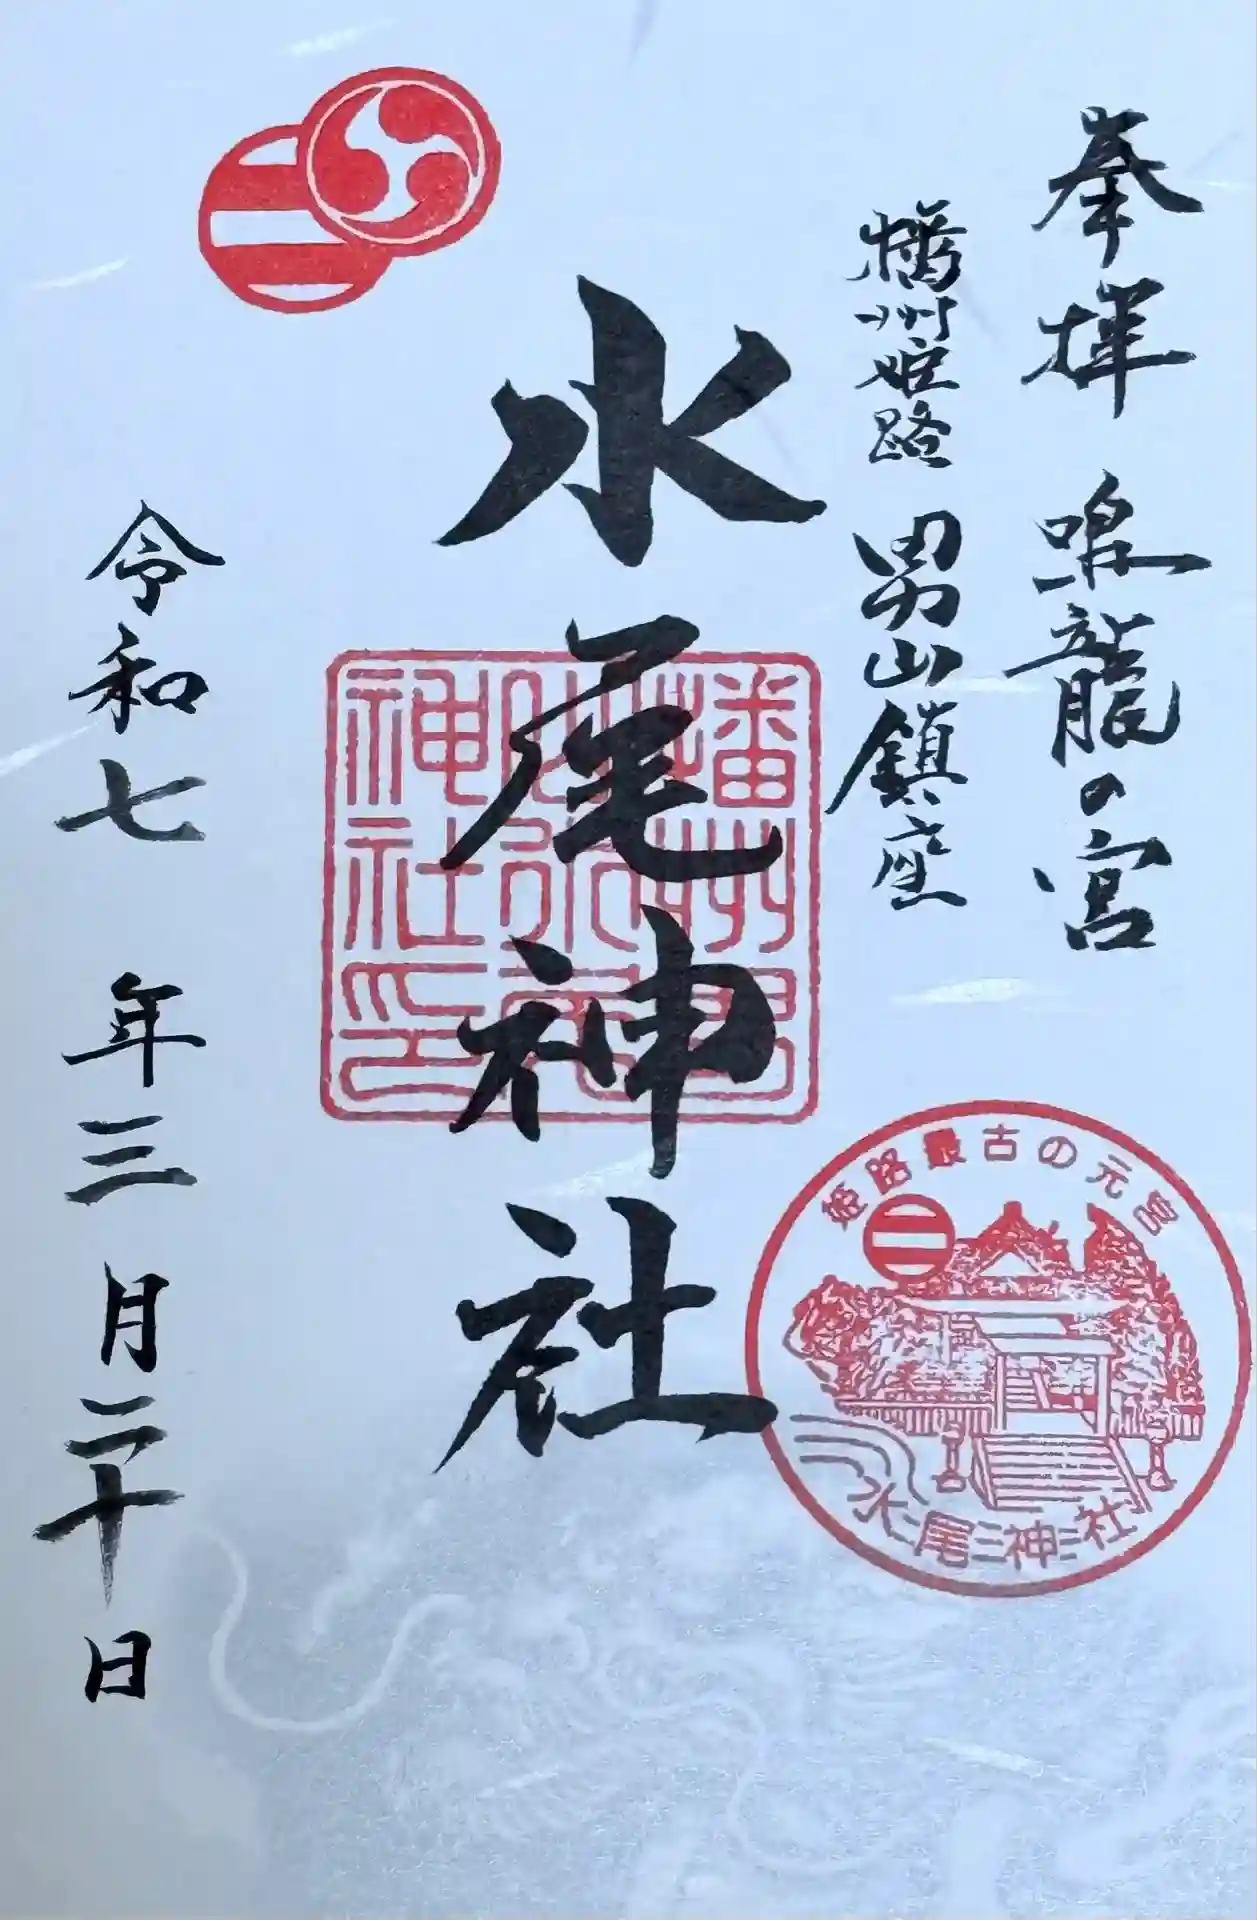 奉拝 鳴龍の宮
播州姫路 男山鎮座
水尾神社
播州男
山水尾
神社印
令和七年三月二十日
姫路最古の元宮
水尾神社